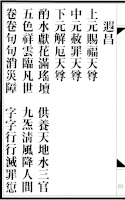 遐昌
上元賜福天尊
中元赦罪天尊
下元解厄天尊
酌水獻花滿瑤壇 供養天地水三官
五色祥雲臨凡世 九炁清風降人間
卷卷句句消災障 字字行行滅罪愆